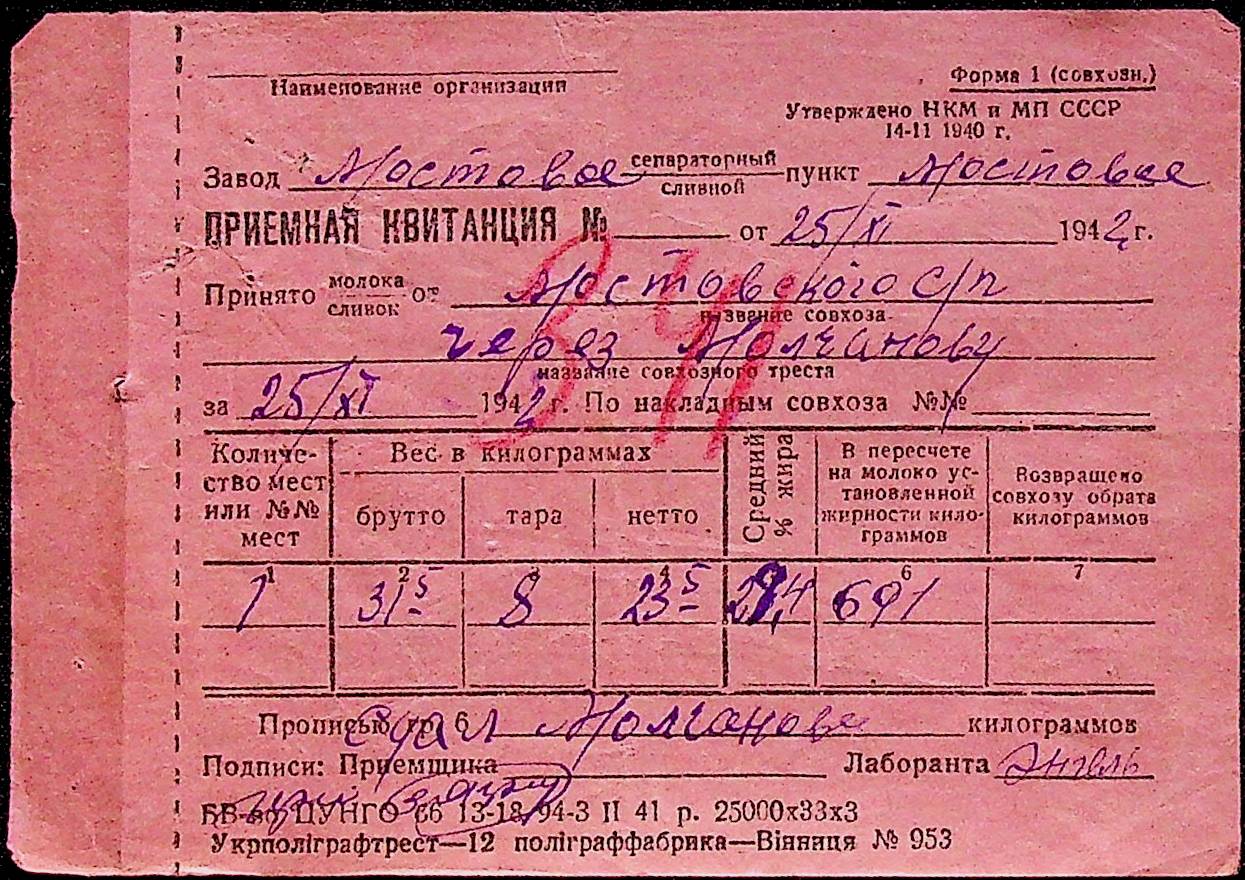 Наименование организации
Форма 1 (совхозн.)
Утверждено НКМ и МП СССР
14-11 1940 г.
Завод Мостовое сепараторный сливной пункт Мостовое
ПРИЕМНАЯ КВИТАНЦИЯ № от 25/XI 1942 г.
Принято молока сливок от Мостовского с/п
название совхоза
через Молчанову
название совхозного треста
за 25/XI 1942 г. По накладным совхоза №№
Количество мест или №№ мест
Вес в килограммах
брутто тара нетто
Средний % жира
В пересчете на молоко установленной жирности килограммов
Возвращено совхозу обрата килограммов
1 2 3 4 6 7
1 31⁵ 8 23⁵ 29,4 691
Прописью гр. 6 Сдал Молчанова килограммов
Подписи: Приемщика Лаборанта Энгель
ЦУНГО 66 13-18/94-3 II 41 р. 25000х33х3
Укрполіграфтрест—12 поліграффабрика—Вінниця № 953